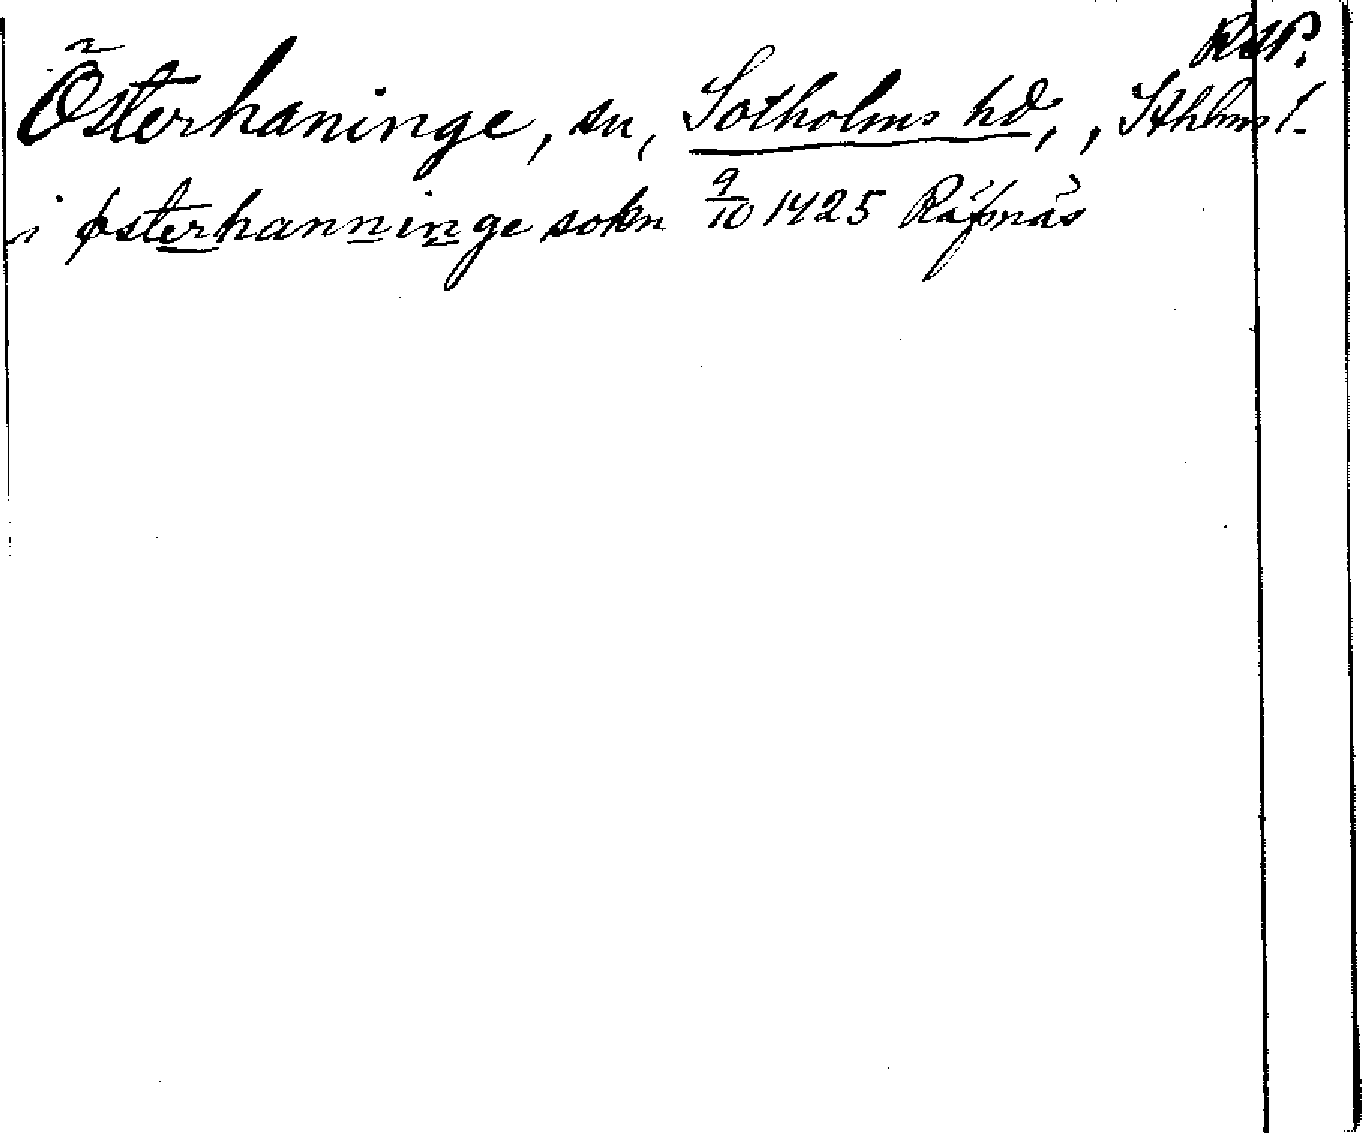 RAP.
Österhaninge, sn, Sotholms hd, , Sthlms l.
i østerhanninge sokn 9/10 1425 Räfsnäs